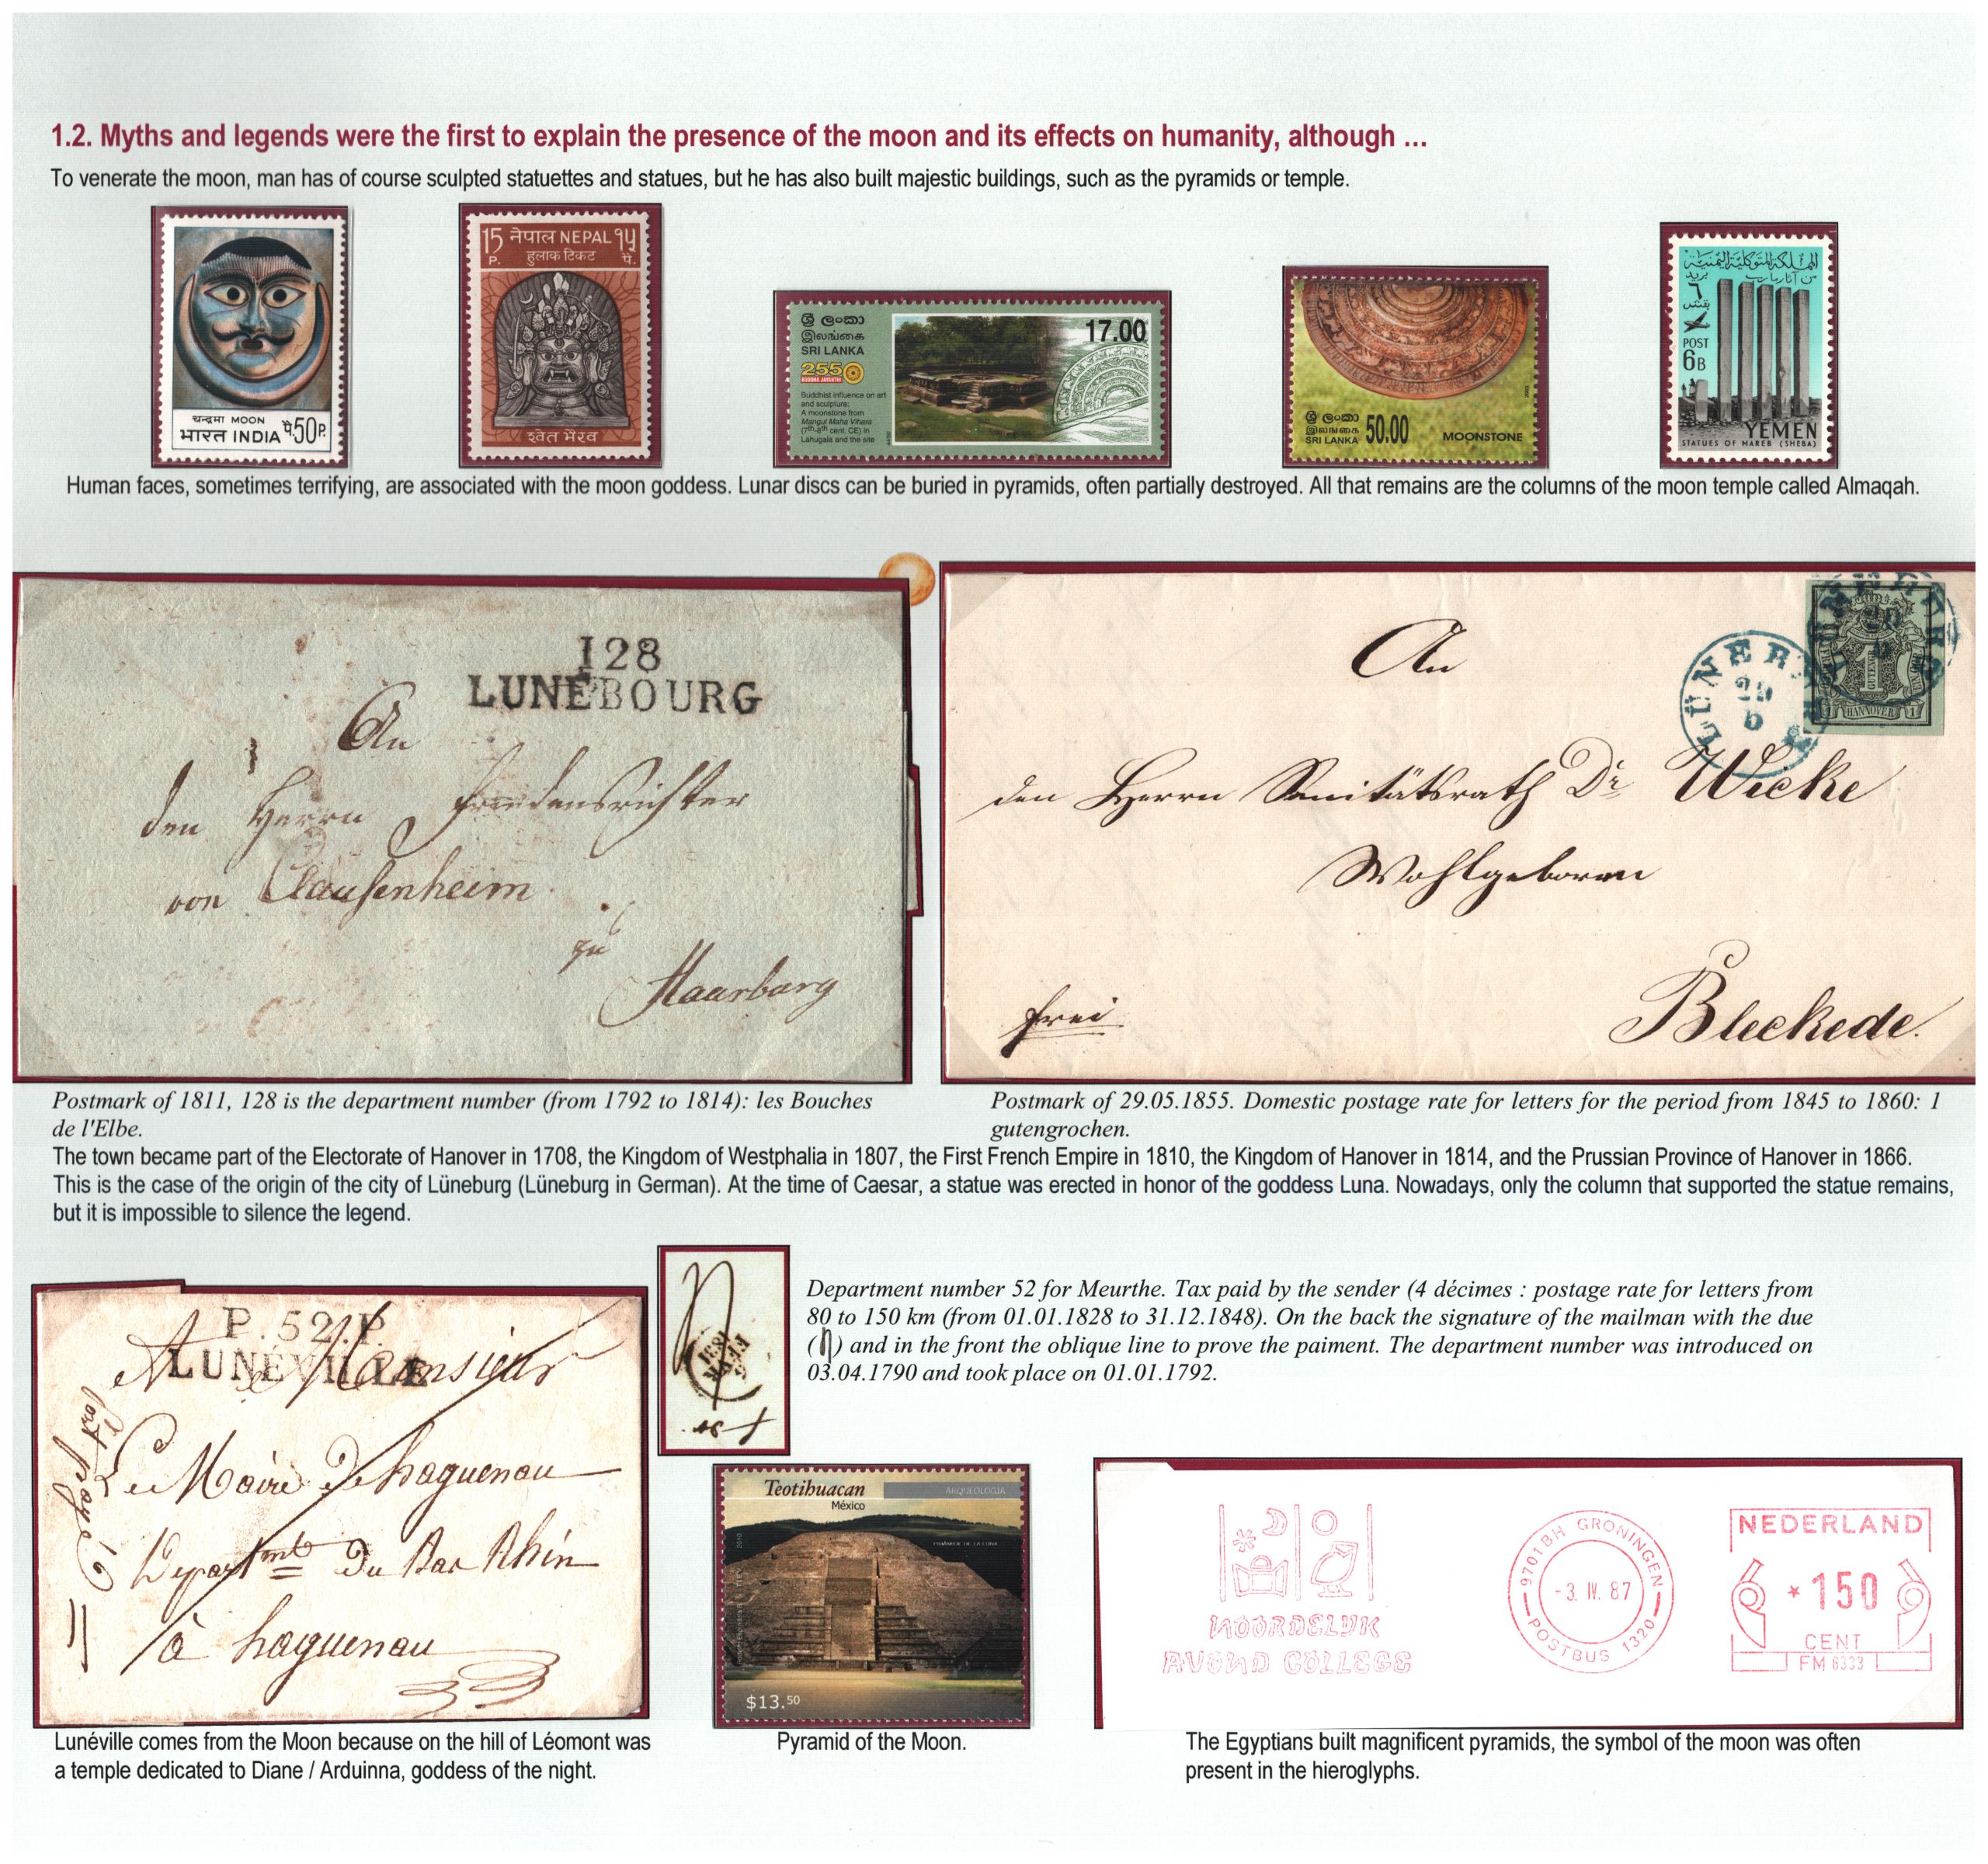 1.2. Myths and legends were the first to explain the presence of the moon and its effects on humanity, although ...
To venerate the moon, man has of course sculpted statuettes and statues, but he has also built majestic buildings, such as the pyramids or temple.
चन्द्रमा MOON
भारत INDIA पै.50P.
15 नेपाल NEPAL १५
P. हुलाक टिकट पै.
श्वेत भैरव
ශ්‍රී ලංකා
இலங்கை
SRI LANKA
17.00
2550
BUDDHA JAYANTHI
Buddhist influence on art
and sculpture:
A moonstone from
Mangul Maha Vihara
(7th-8th cent. CE) in
Lahugala and the site
ශ්‍රී ලංකා
இலங்கை
SRI LANKA 50.00 MOONSTONE
المملكة المتوكلية اليمنية
من آثار مارب
بريد
٦
بقش
POST
6B
YEMEN
STATUES OF MAREB (SHEBA)
Human faces, sometimes terrifying, are associated with the moon goddess. Lunar discs can be buried in pyramids, often partially destroyed. All that remains are the columns of the moon temple called Almaqah.
128
LUNEBOURG
An
den Herrn Friedensrichter
von Clausenheim
zu
Haarburg
LÜNEBURG
29
5
1
GUTENGR
HANNOVER
An
den Herrn Sanitätsrath Dr Wicke
Wohlgeboren
frei
Bleckede.
Postmark of 1811, 128 is the department number (from 1792 to 1814): les Bouches
de l'Elbe.
Postmark of 29.05.1855. Domestic postage rate for letters for the period from 1845 to 1860: 1
gutengrochen.
The town became part of the Electorate of Hanover in 1708, the Kingdom of Westphalia in 1807, the First French Empire in 1810, the Kingdom of Hanover in 1814, and the Prussian Province of Hanover in 1866.
This is the case of the origin of the city of Lüneburg (Lüneburg in German). At the time of Caesar, a statue was erected in honor of the goddess Luna. Nowadays, only the column that supported the statue remains,
but it is impossible to silence the legend.
P.52.P.
LUNÉVILLE
A Monsieur
Le Maire de haguenau
Departmt du Bas Rhin
à haguenau
Port payé
1831
Department number 52 for Meurthe. Tax paid by the sender (4 décimes : postage rate for letters from
80 to 150 km (from 01.01.1828 to 31.12.1848). On the back the signature of the mailman with the due
( ) and in the front the oblique line to prove the paiment. The department number was introduced on
03.04.1790 and took place on 01.01.1792.
Teotihuacan
ARQUEOLOGIA
México
PIRÁMIDE DE LA LUNA
2010
$13.50
NOORDELIJK
AVOND COLLEGE
9701 BH GRONINGEN
-3. IV. 87
POSTBUS 1320
NEDERLAND
* 150
CENT
FM 6333
Lunéville comes from the Moon because on the hill of Léomont was
a temple dedicated to Diane / Arduinna, goddess of the night.
Pyramid of the Moon.
The Egyptians built magnificent pyramids, the symbol of the moon was often
present in the hieroglyphs.